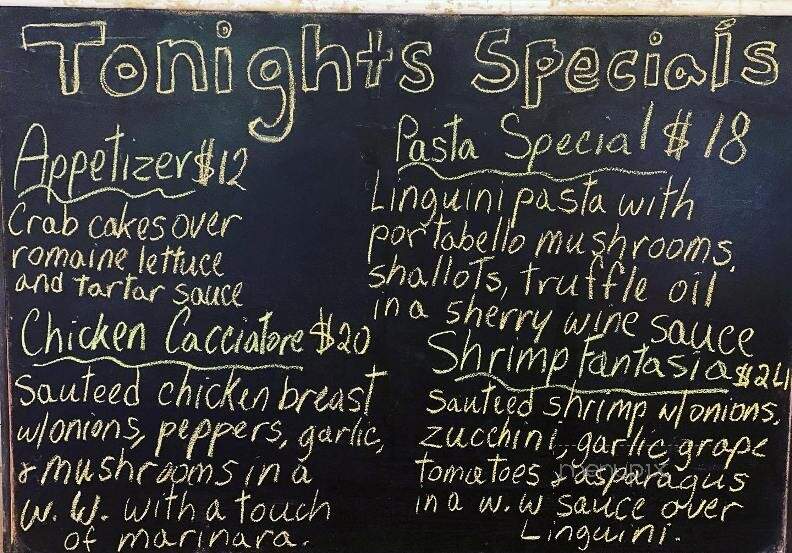 Tonights Specials
Appetizer $12
Crab cakes over
romaine lettuce
and tartar sauce
Chicken Cacciatore $20
Sauteed chicken breast
w/onions, peppers, garlic,
& mushrooms in a
w. w. with a touch
of marinara.
Pasta Special $18
Linguini pasta with
portabello mushrooms,
shallots, truffle oil
in a sherry wine sauce
Shrimp Fantasia $24
Sauteed shrimp w/onions,
zucchini, garlic, grape
tomatoes & asparagus
in a w.w sauce over
Linguini.
menupix